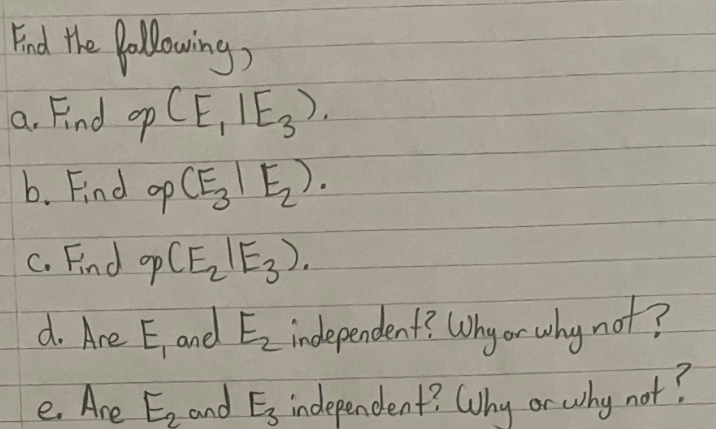 Find the following,
a. Find p(E₁|E₃).
b. Find p(E₃|E₂).
c. Find p(E₂|E₃).
d. Are E₁ and E₂ independent? Why or why not?
e. Are E₂ and E₃ independent? Why or why not?